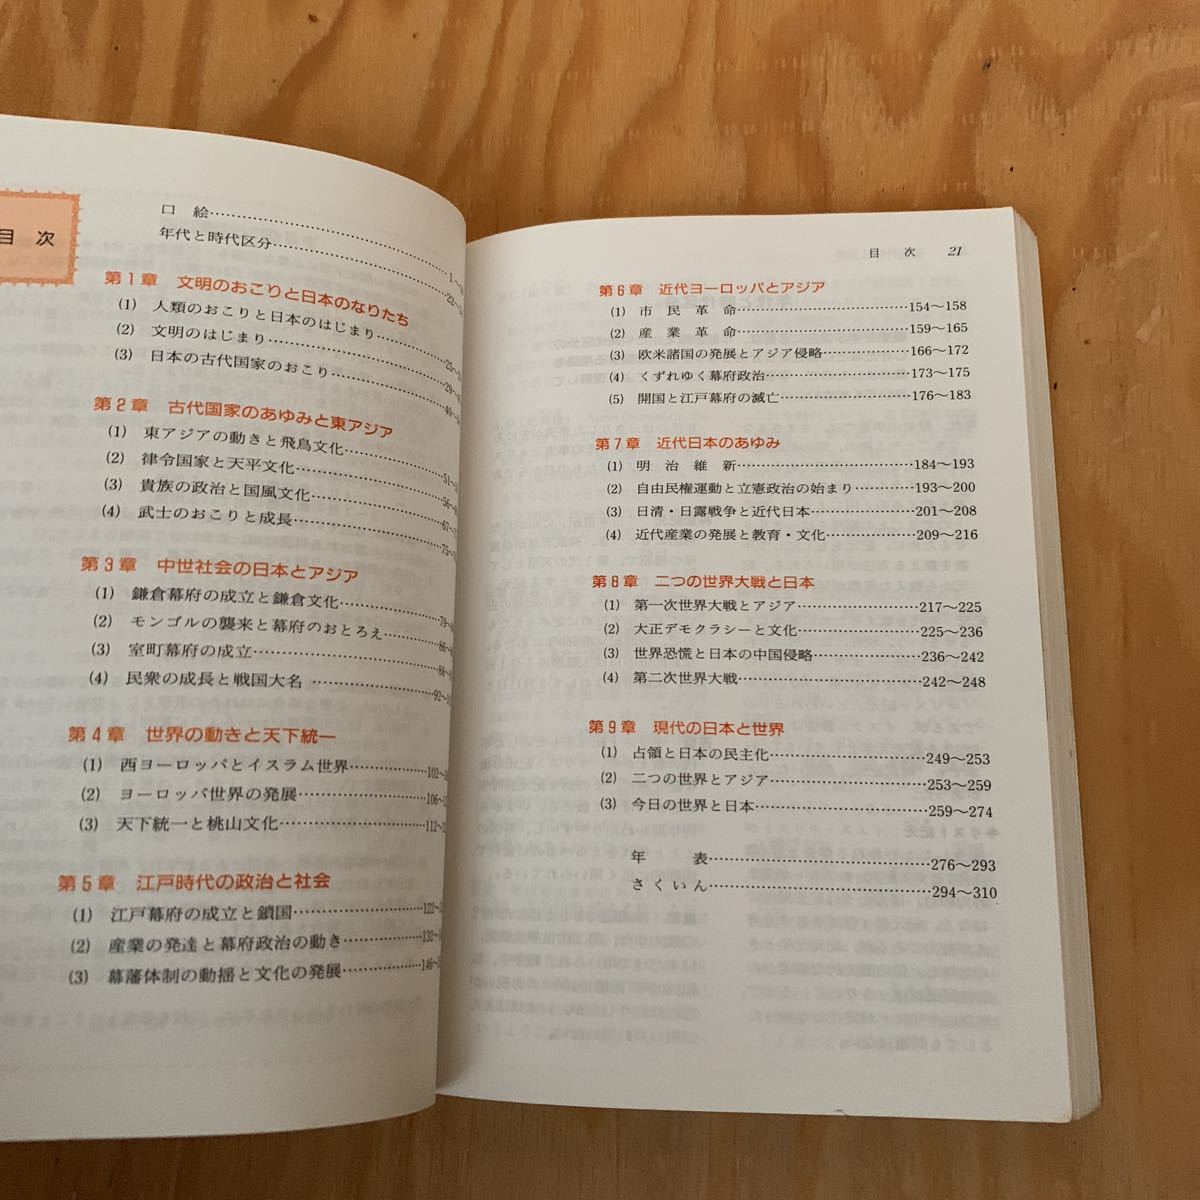 目 次
口 絵……1～
年代と時代区分……22～
第1章 文明のおこりと日本のなりたち
(1) 人類のおこりと日本のはじまり……25～
(2) 文明のはじまり……29～
(3) 日本の古代国家のおこり……40～
第2章 古代国家のあゆみと東アジア
(1) 東アジアの動きと飛鳥文化……51～
(2) 律令国家と天平文化……56～
(3) 貴族の政治と国風文化……67～
(4) 武士のおこりと成長……75～
第3章 中世社会の日本とアジア
(1) 鎌倉幕府の成立と鎌倉文化……79～
(2) モンゴルの襲来と幕府のおとろえ……86～
(3) 室町幕府の成立……88～
(4) 民衆の成長と戦国大名……92～
第4章 世界の動きと天下統一
(1) 西ヨーロッパとイスラム世界……102～
(2) ヨーロッパ世界の発展……106～
(3) 天下統一と桃山文化……112～
第5章 江戸時代の政治と社会
(1) 江戸幕府の成立と鎖国……122～
(2) 産業の発達と幕府政治の動き……132～
(3) 幕藩体制の動揺と文化の発展……146～
目 次 21
第6章 近代ヨーロッパとアジア
(1) 市 民 革 命……154～158
(2) 産 業 革 命……159～165
(3) 欧米諸国の発展とアジア侵略……166～172
(4) くずれゆく幕府政治……173～175
(5) 開国と江戸幕府の滅亡……176～183
第7章 近代日本のあゆみ
(1) 明 治 維 新……184～193
(2) 自由民権運動と立憲政治の始まり……193～200
(3) 日清・日露戦争と近代日本……201～208
(4) 近代産業の発展と教育・文化……209～216
第8章 二つの世界大戦と日本
(1) 第一次世界大戦とアジア……217～225
(2) 大正デモクラシーと文化……225～236
(3) 世界恐慌と日本の中国侵略……236～242
(4) 第二次世界大戦……242～248
第9章 現代の日本と世界
(1) 占領と日本の民主化……249～253
(2) 二つの世界とアジア……253～259
(3) 今日の世界と日本……259～274
年 表……276～293
さくいん……294～310